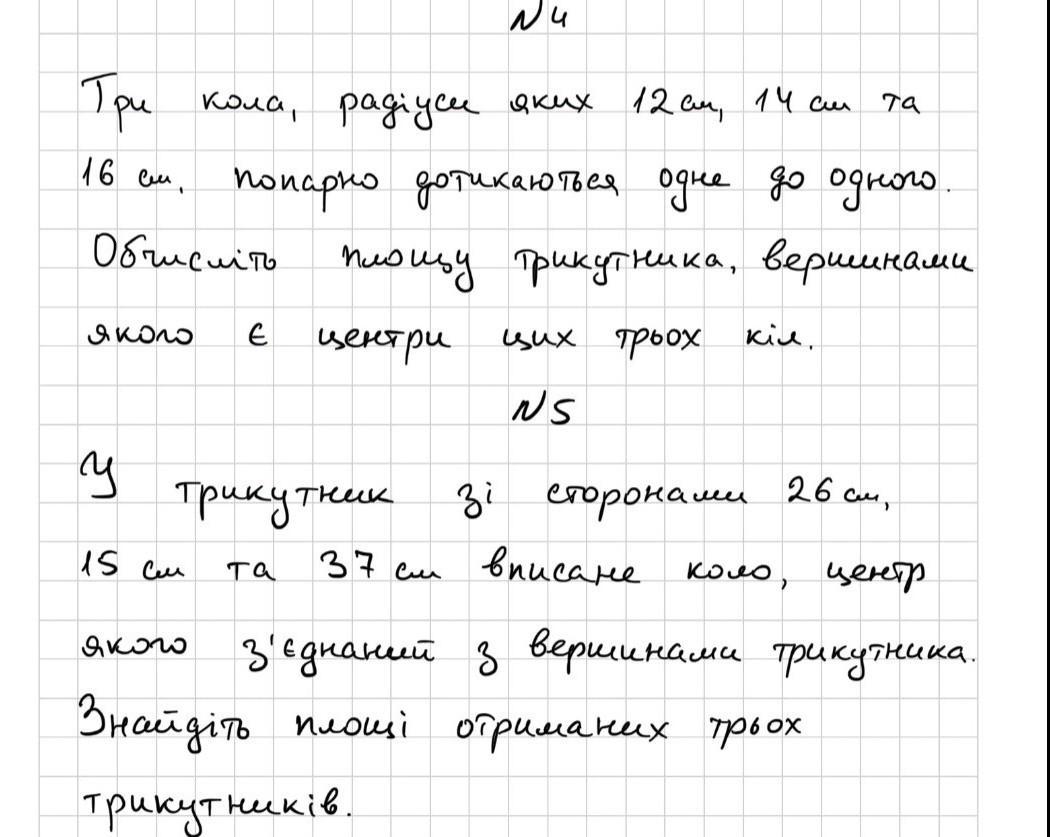 N4
Три кола, радіуси яких 12 см, 14 см та
16 см, попарно дотикаються одне до одного.
Обчисліть площу трикутника, вершинами
якого є центри цих трьох кіл.
N5
У трикутник зі сторонами 26 см,
15 см та 37 см вписане коло, центр
якого з'єднаний з вершинами трикутника.
Знайдіть площі отриманих трьох
трикутників.